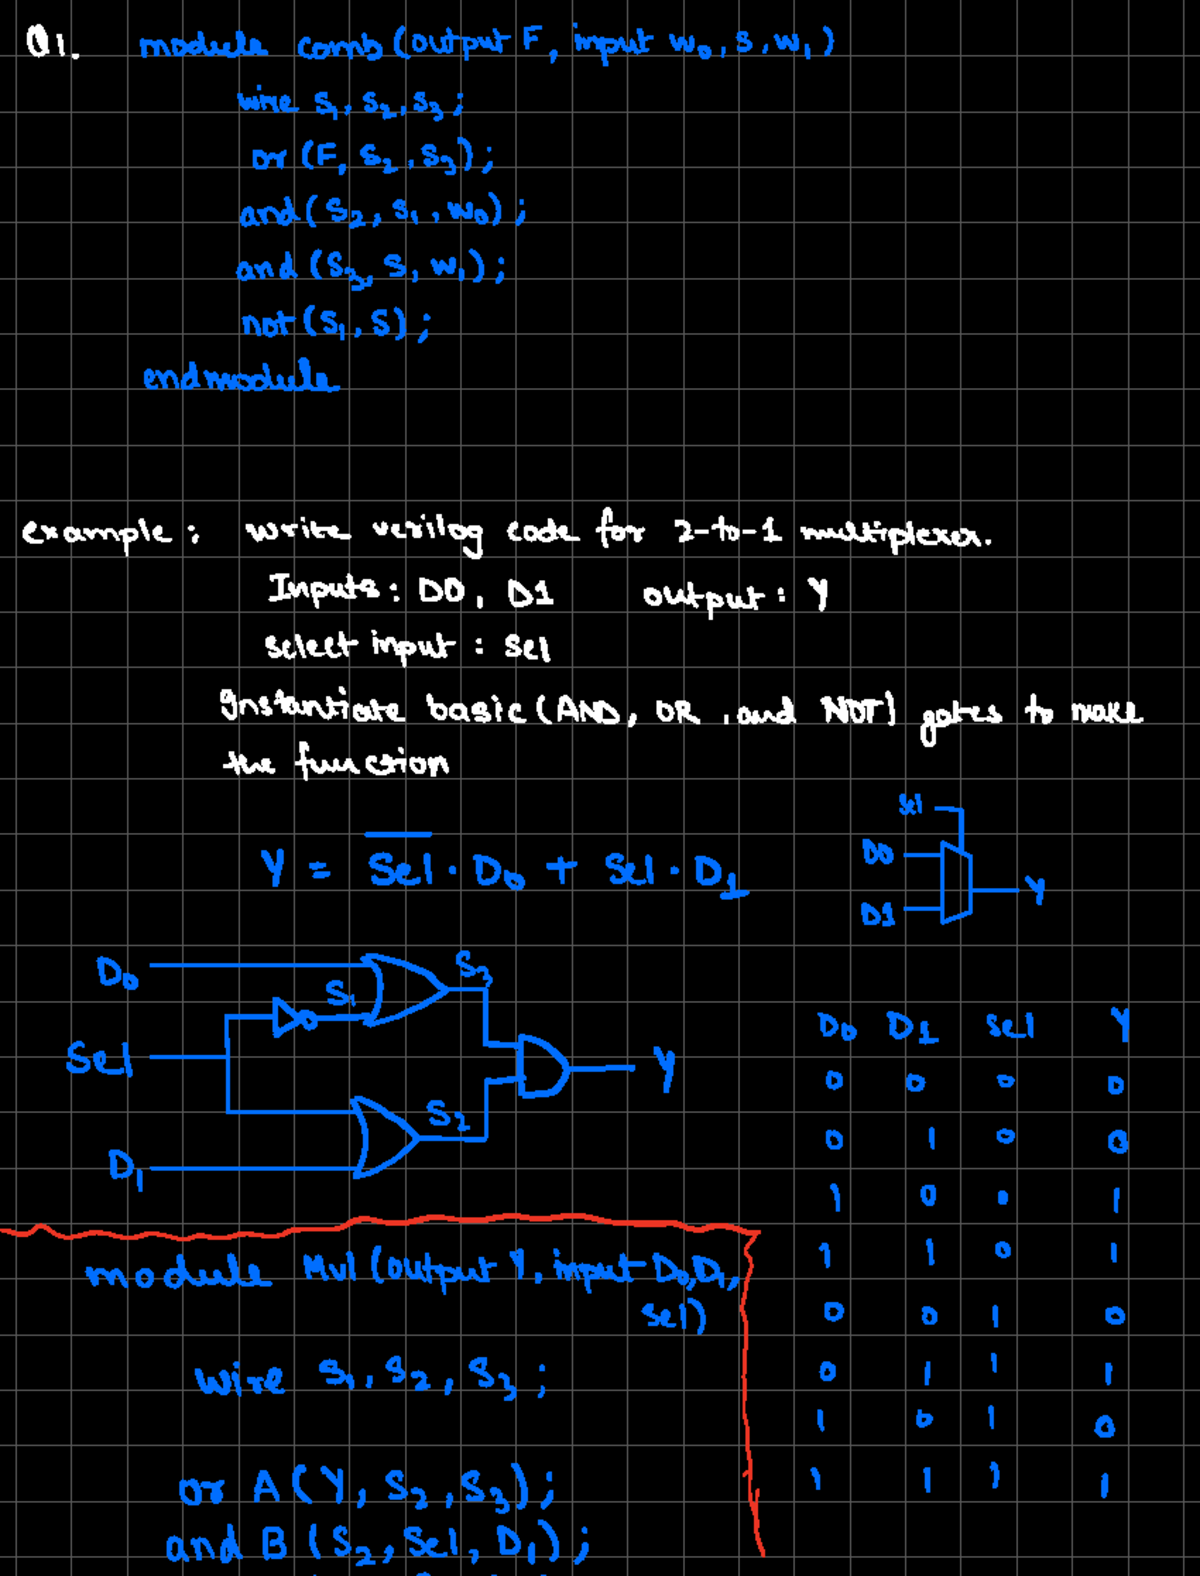 Q1. module comb (output F, input w₀, s, w₁)
wire s₁, s₂, s₃;
or (F, s₂, s₃);
and (s₂, s₁, w₀);
and (s₃, s, w₁);
not (s₁, s);
endmodule
example: write verilog code for 2-to-1 multiplexer.
Inputs: D0, D1 output: Y
select input: Sel
Instantiate basic (AND, OR, and NOT) gates to make
the function
Sel
D0
D1
Y
Y = S̅e̅l̅ · D₀ + Sel · D₁
D₀
S₁
S₃
Sel
Y
S₂
D₁
D₀ D1 Sel Y
0 0 0 0
0 1 0 0
1 0 0 1
1 1 0 1
0 0 1 0
0 1 1 1
1 0 1 0
1 1 1 1
module Mul (output Y, input D₀, D₁,
Sel)
wire S₁, S₂, S₃;
or A (Y, S₂, S₃);
and B (S₂, Sel, D₁);